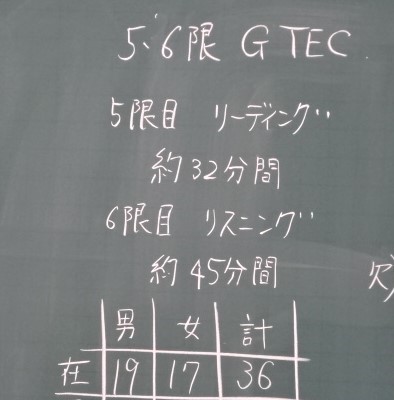 5、6限 GTEC
5限目 リーディング‥
約32分間
6限目 リスニング‥
約45分間
欠
男 女 計
在 19 17 36